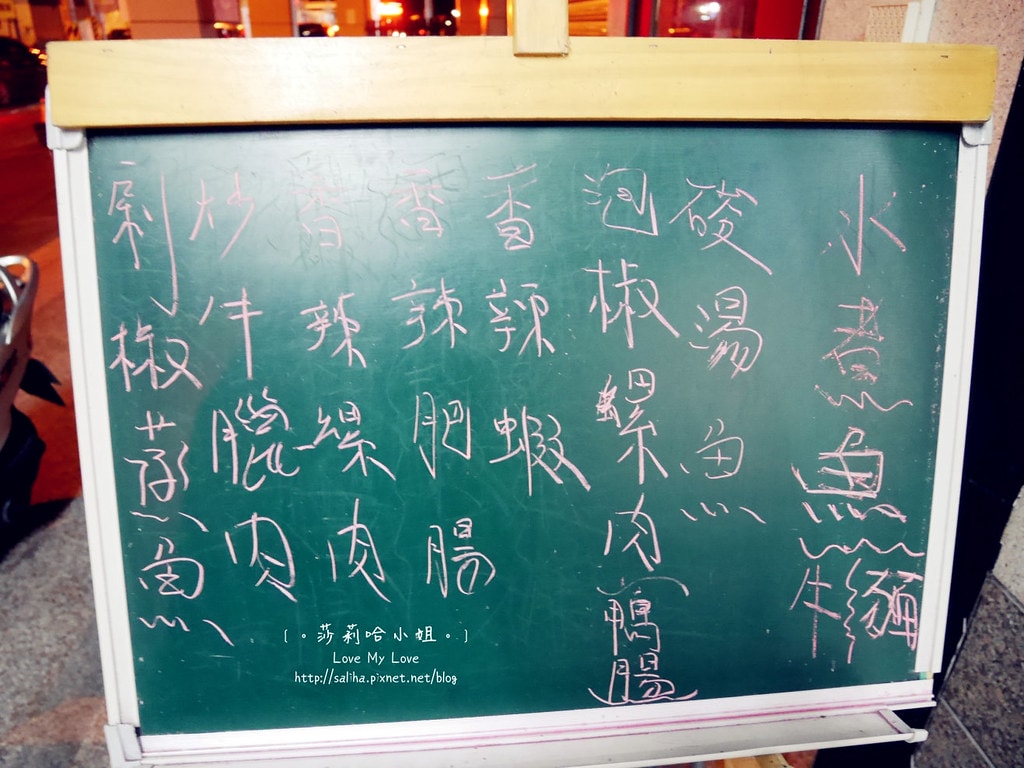 水煮魚 牛 獼
酸湯魚
泡椒螺肉 鴨腸
香辣蝦
香辣肥腸
香辣螺肉
炒牛臘肉
剁椒蒸魚
(。莎莉哈小姐。)
Love My Love
http://saliha.pixnet.net/blog